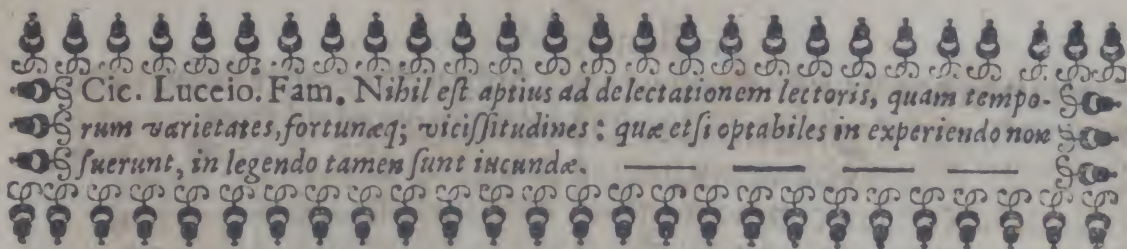 Cic. Luceio. Fam. Nihil eſt aptius ad delectationem lectoris, quam tempo-
rum varietates, fortunæq; viciſſitudines: quæ etſi optabiles in experiendo non
fuerunt, in legendo tamen ſunt iucundæ.